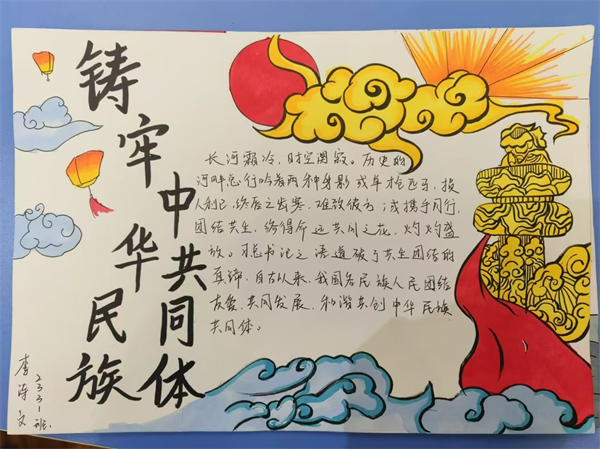 铸牢中华民族
共同体
长河霜冷，时空阒寂。历史的
河畔总行吟着两种身影或单枪匹马，损
人利己，终卷之出寒，难改彼方；或携手同行，
团结共生，终得命运共同之花，灼灼盛
放。习总书记之语道破了共生团结的
真谛，自古以来，我国各民族人民团结
友爱，共同发展，和谐共创中华民族
共同体。
李诗文
2331班